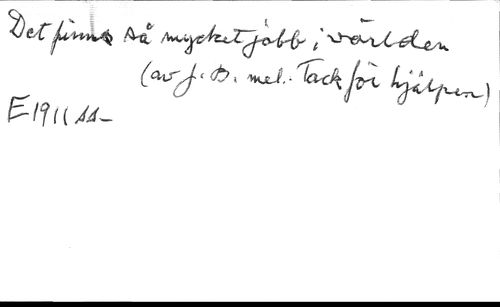 Det finns så mycket jobb i världen
(av J. B. mel. Tack för hjälpen)
E1911 ss-